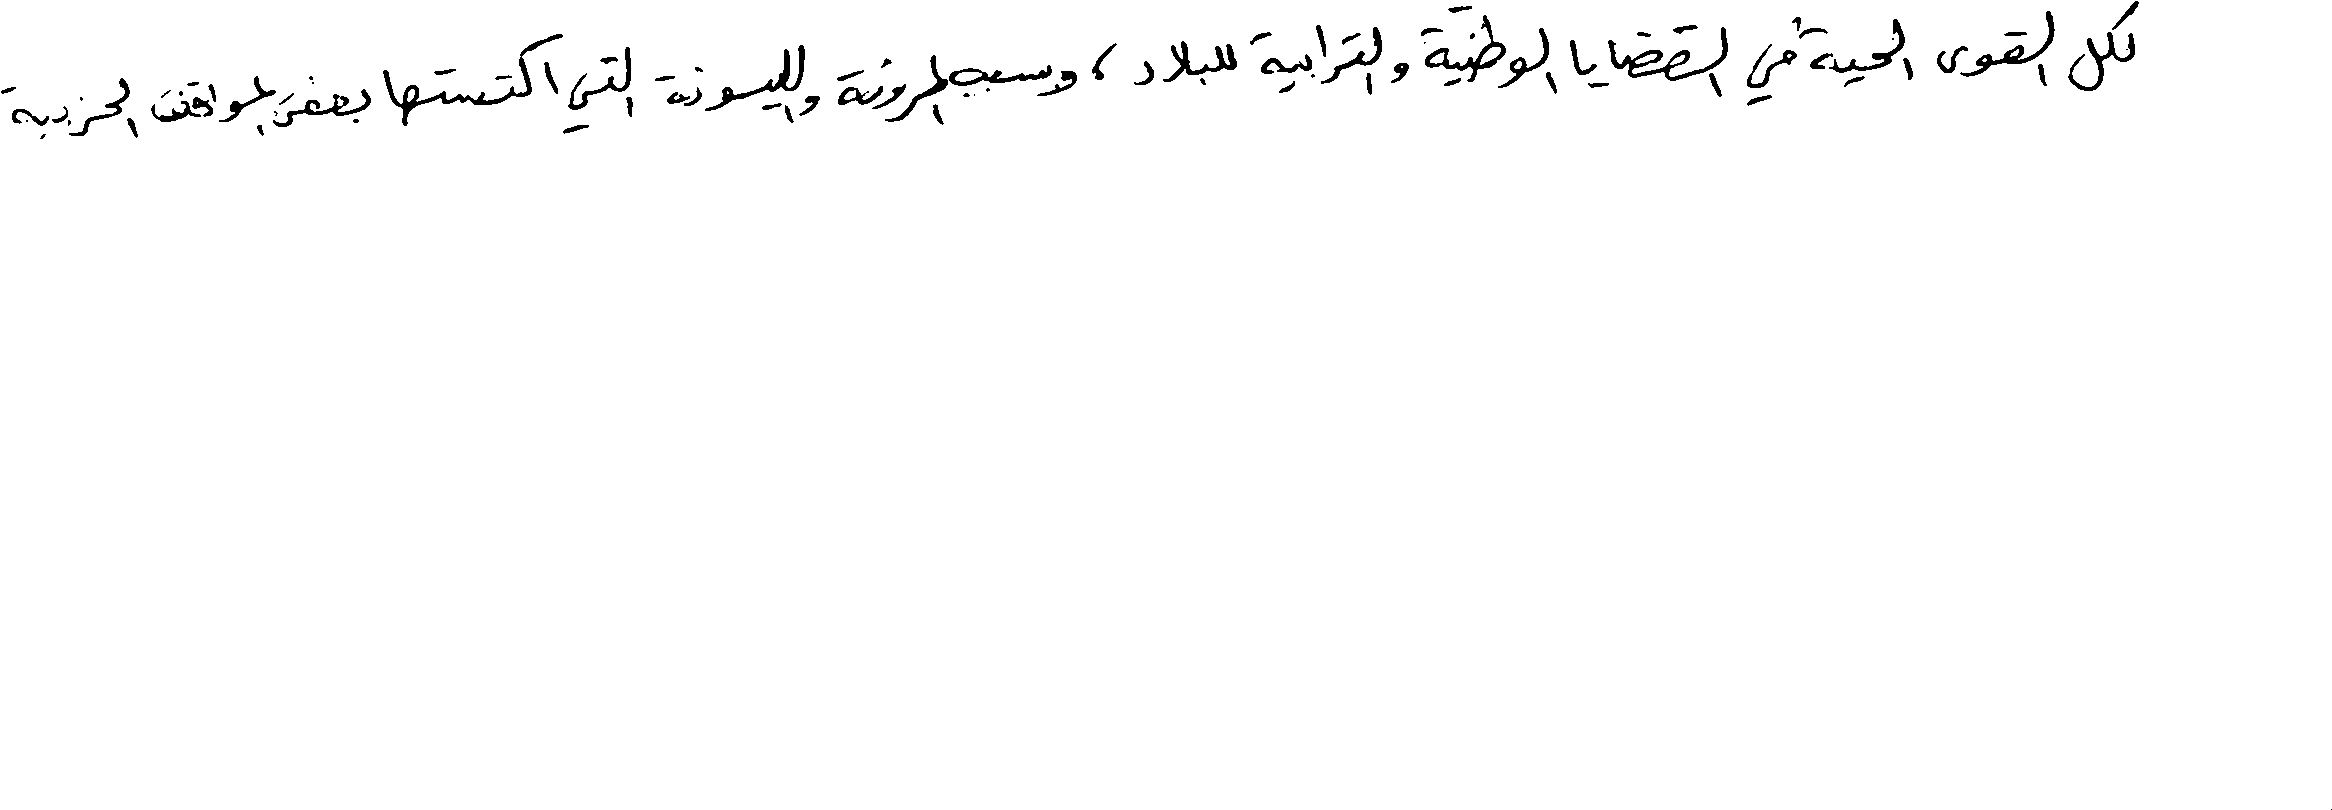 لكل القوى الحية في القضايا الوطنية والترابية للبلاد ، وبسبب المرونة والليونة التي اكتستها بعض المواقف الحزبية